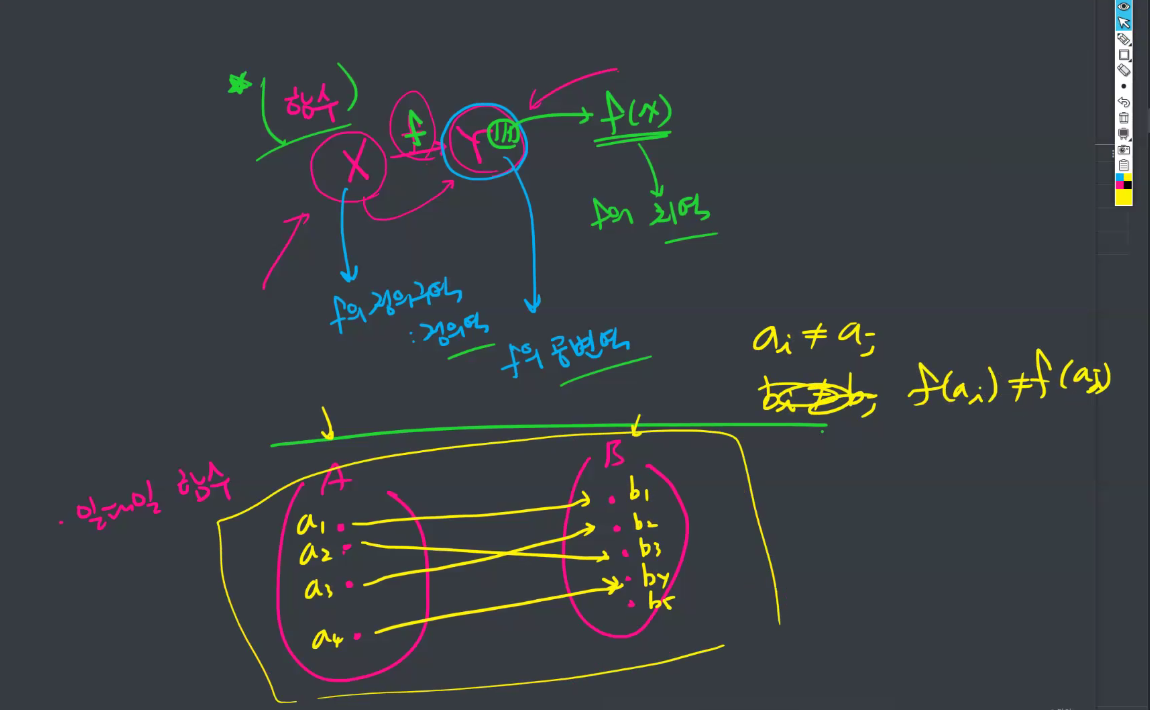 함수
X f Y f(X)
f의 치역
f의 정의구역
: 정의역
f의 공변역
aᵢ ≠ aⱼ
f(aᵢ) ≠ f(aⱼ)
· 일대일 함수
A B
a₁ b₁
a₂ b₂
a₃ b₃
a₄ b₄
b₅